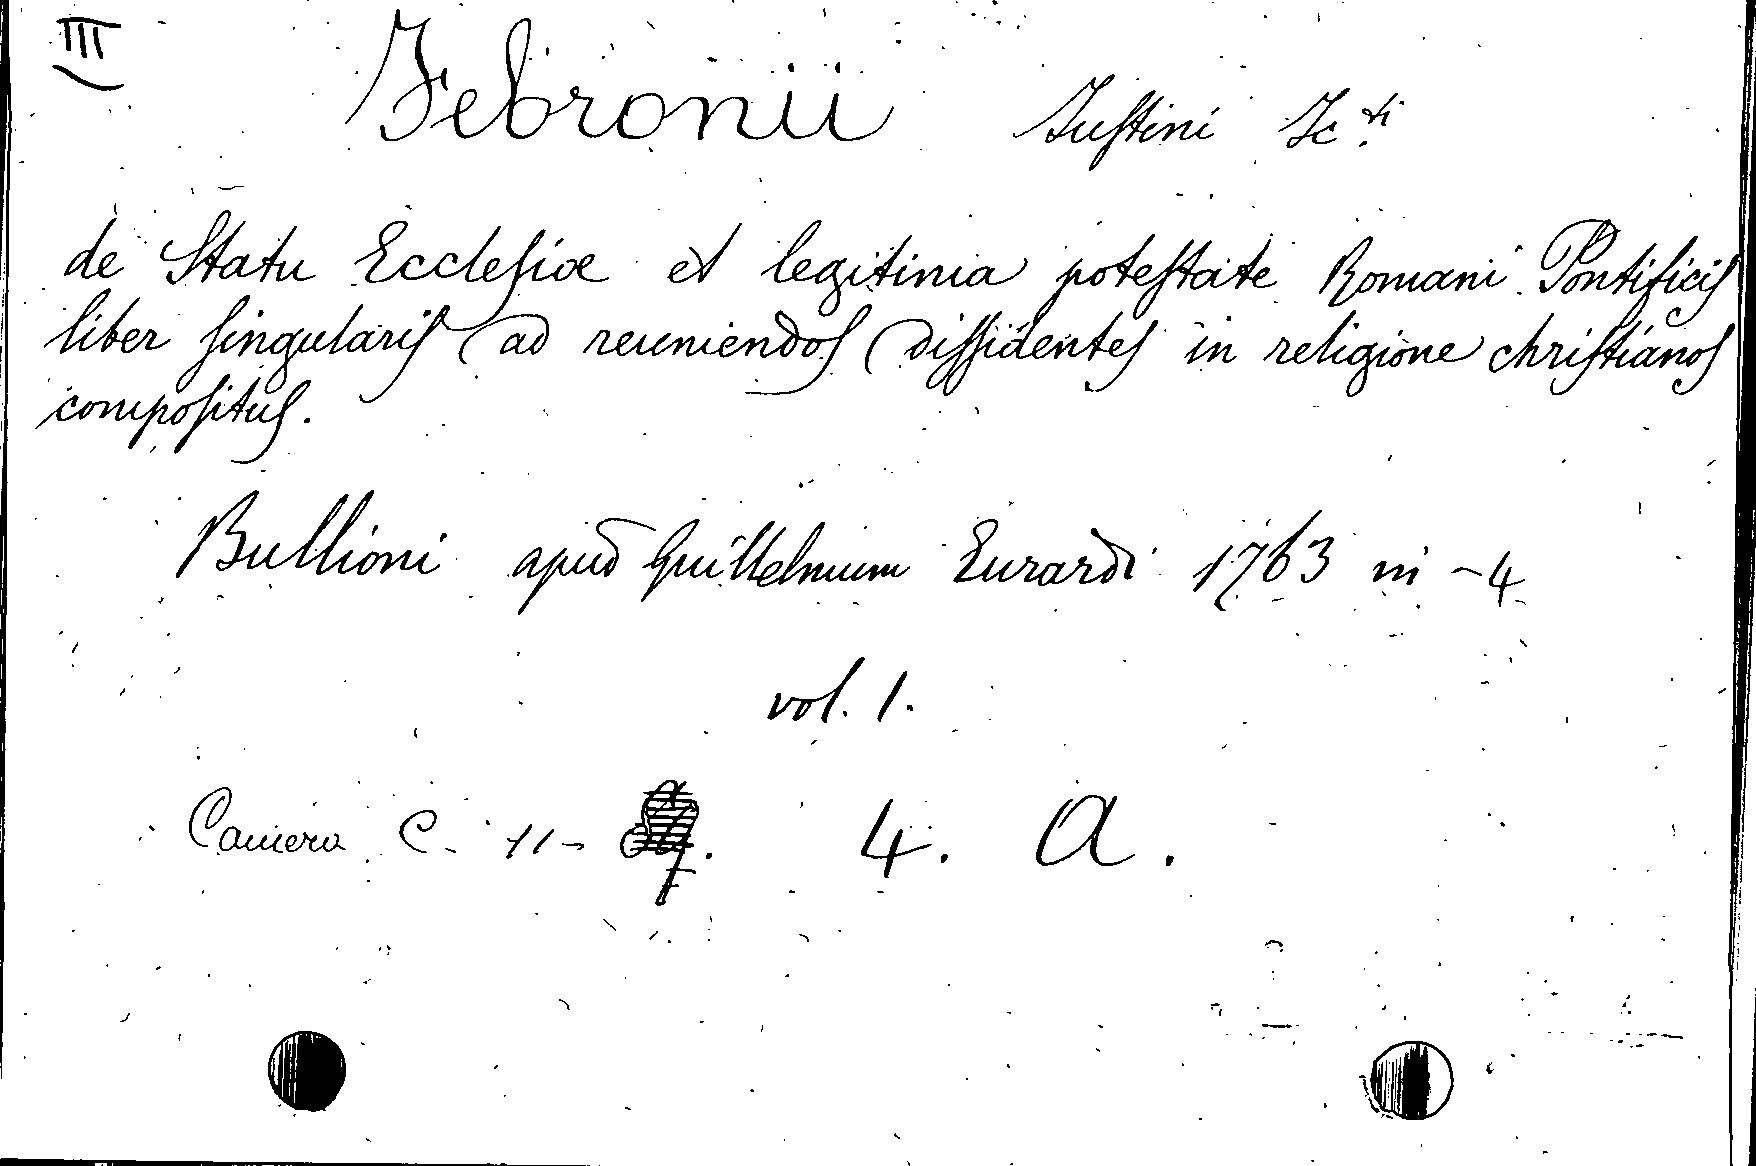 III
Febronii Justini Jcti
de Statu Ecclesiæ et legitima potestate Romani Pontificis
liber singularis ad reuniendos dissidentes in religione christianos
compositus.
Bullioni apud Guillelmum Eurardi 1763 in-4
vol. 1.
Camera C. 11- 4. A.